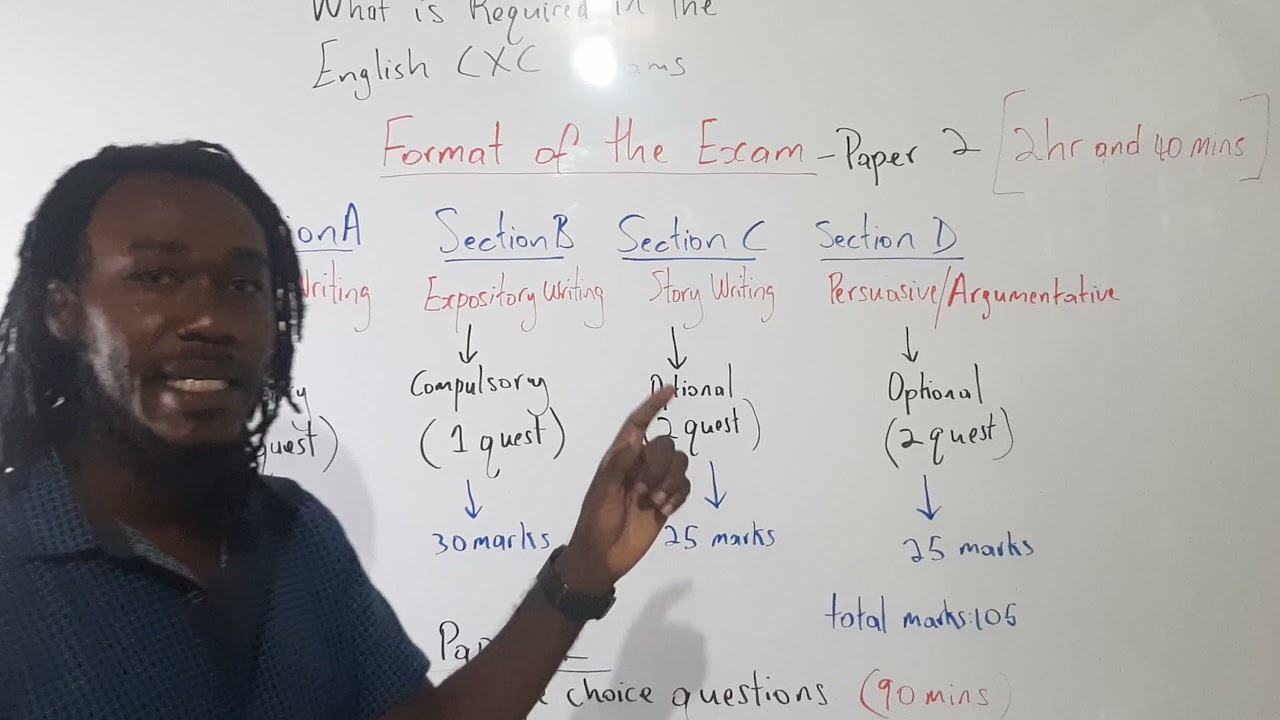 What is Required in the
English CXC
Format of the Exam - Paper 2 [2hr and 40 mins]
ion A Section B Section C Section D
Writing Expository Writing Story Writing Persuasive/Argumentative
Compulsory Optional Optional
quest) (1 quest) (2 quest) (2 quest)
30 marks 25 marks 25 marks
total marks:105
choice questions (90 mins)